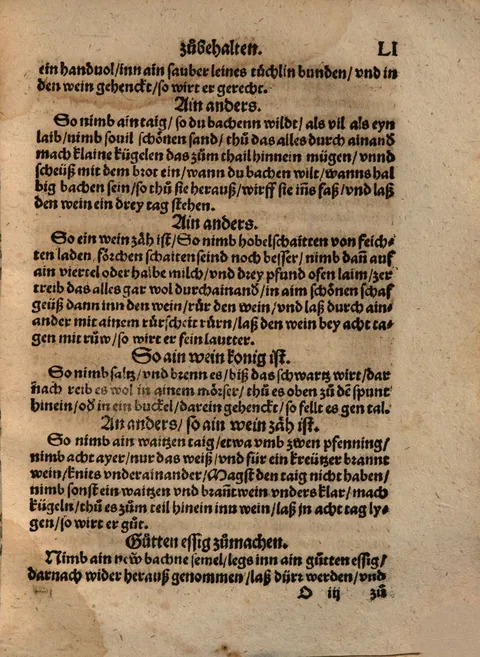 zůbehalten. LI
ein handuol/inn ain sauber leines tüchlin bunden/vnd in
den wein gehenckt/so wirt er gerecht.
Ain anders.
So nimb ain taig/so du bachenn wildt/als vil als eyn
laib/nimb souil schönen sand/thů das alles durch ainand
mach klaine kügelen das zům thail hinnein mügen/vnnd
scheüß mit dem brot ein/wann du bachen wilt/wanns hal
big bachen sein/so thů sie herauß/wirff sie iñs faß/vnd laß
den wein ein drey tag stehen.
Ain anders.
So ein wein zäh ist/So nimb hobelschaitten von feich⸗
ten laden/förchen schaiten seind noch besser/nimb dañ auf
ain viertel oder halbe milch/vnd drey pfund ofen laim/zer
treib das alles gar wol durchainand/in aim schönen schaf
geüß dann inn den wein/rür den wein/vnd laß durch ain⸗
ander mit ainem rürscheit rürn/laß den wein bey acht ta⸗
gen mit růw/so wirt er fein lautter.
So ain wein konig ist.
So nimb saltz/vnd brenn es/biß das schwartz wirt/dar
nach reib es wol in ainem mörser/thů es oben zů dē spunt
hinein/od in ein buckel/darein gehenckt/so fellt es gen tal.
An anders/so ain wein zäh ist.
So nimb ain waitzen taig/etwa vmb zwen pfenning/
nimb acht ayer/nur das weiß/vnd für ein kreützer brannt
wein/knits vnderainander/Magst den taig nicht haben/
nimb sonst ein waitzen vnd brañtwein vnders klar/mach
kügeln/thů es zům teil hinein inn wein/laß in acht tag ly⸗
gen/so wirt er gůt.
Gůtten essig zůmachen.
Nimb ain new bachne semel/legs inn ain gůtten essig/
darnach wider herauß genommen/laß dürr werden/vnd
O iij zů